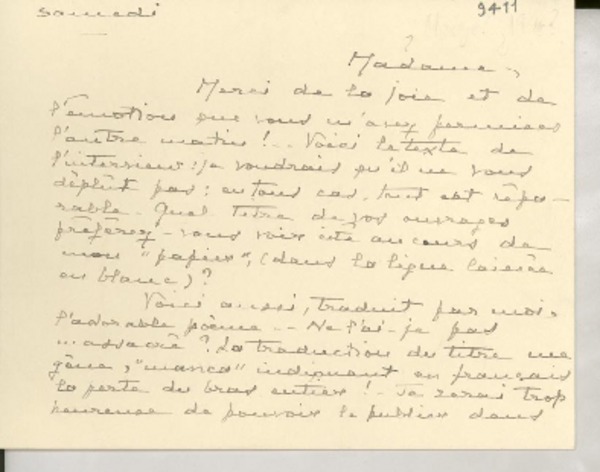 samedi
9411
Madame,
Merci de la joie et de
l'émotion que vous m'avez permises
l'autre matin !.. Voici le texte de
l'interview : je voudrais qu'il ne vous
déplût pas : en tous cas, tout est répa-
rable. Quel titre de vos ouvrages
préférez-vous voir cité au cours de
mon "papier", (dans la ligne laissée
en blanc) ?
Voici aussi, traduit par moi,
l'adorable poème -- Ne l'ai-je pas
... assacré ? La traduction du titre me
gêne, "manca" indiquant en français
la perte du bras entier ! - Je serai trop
heureuse de pouvoir le publier dans